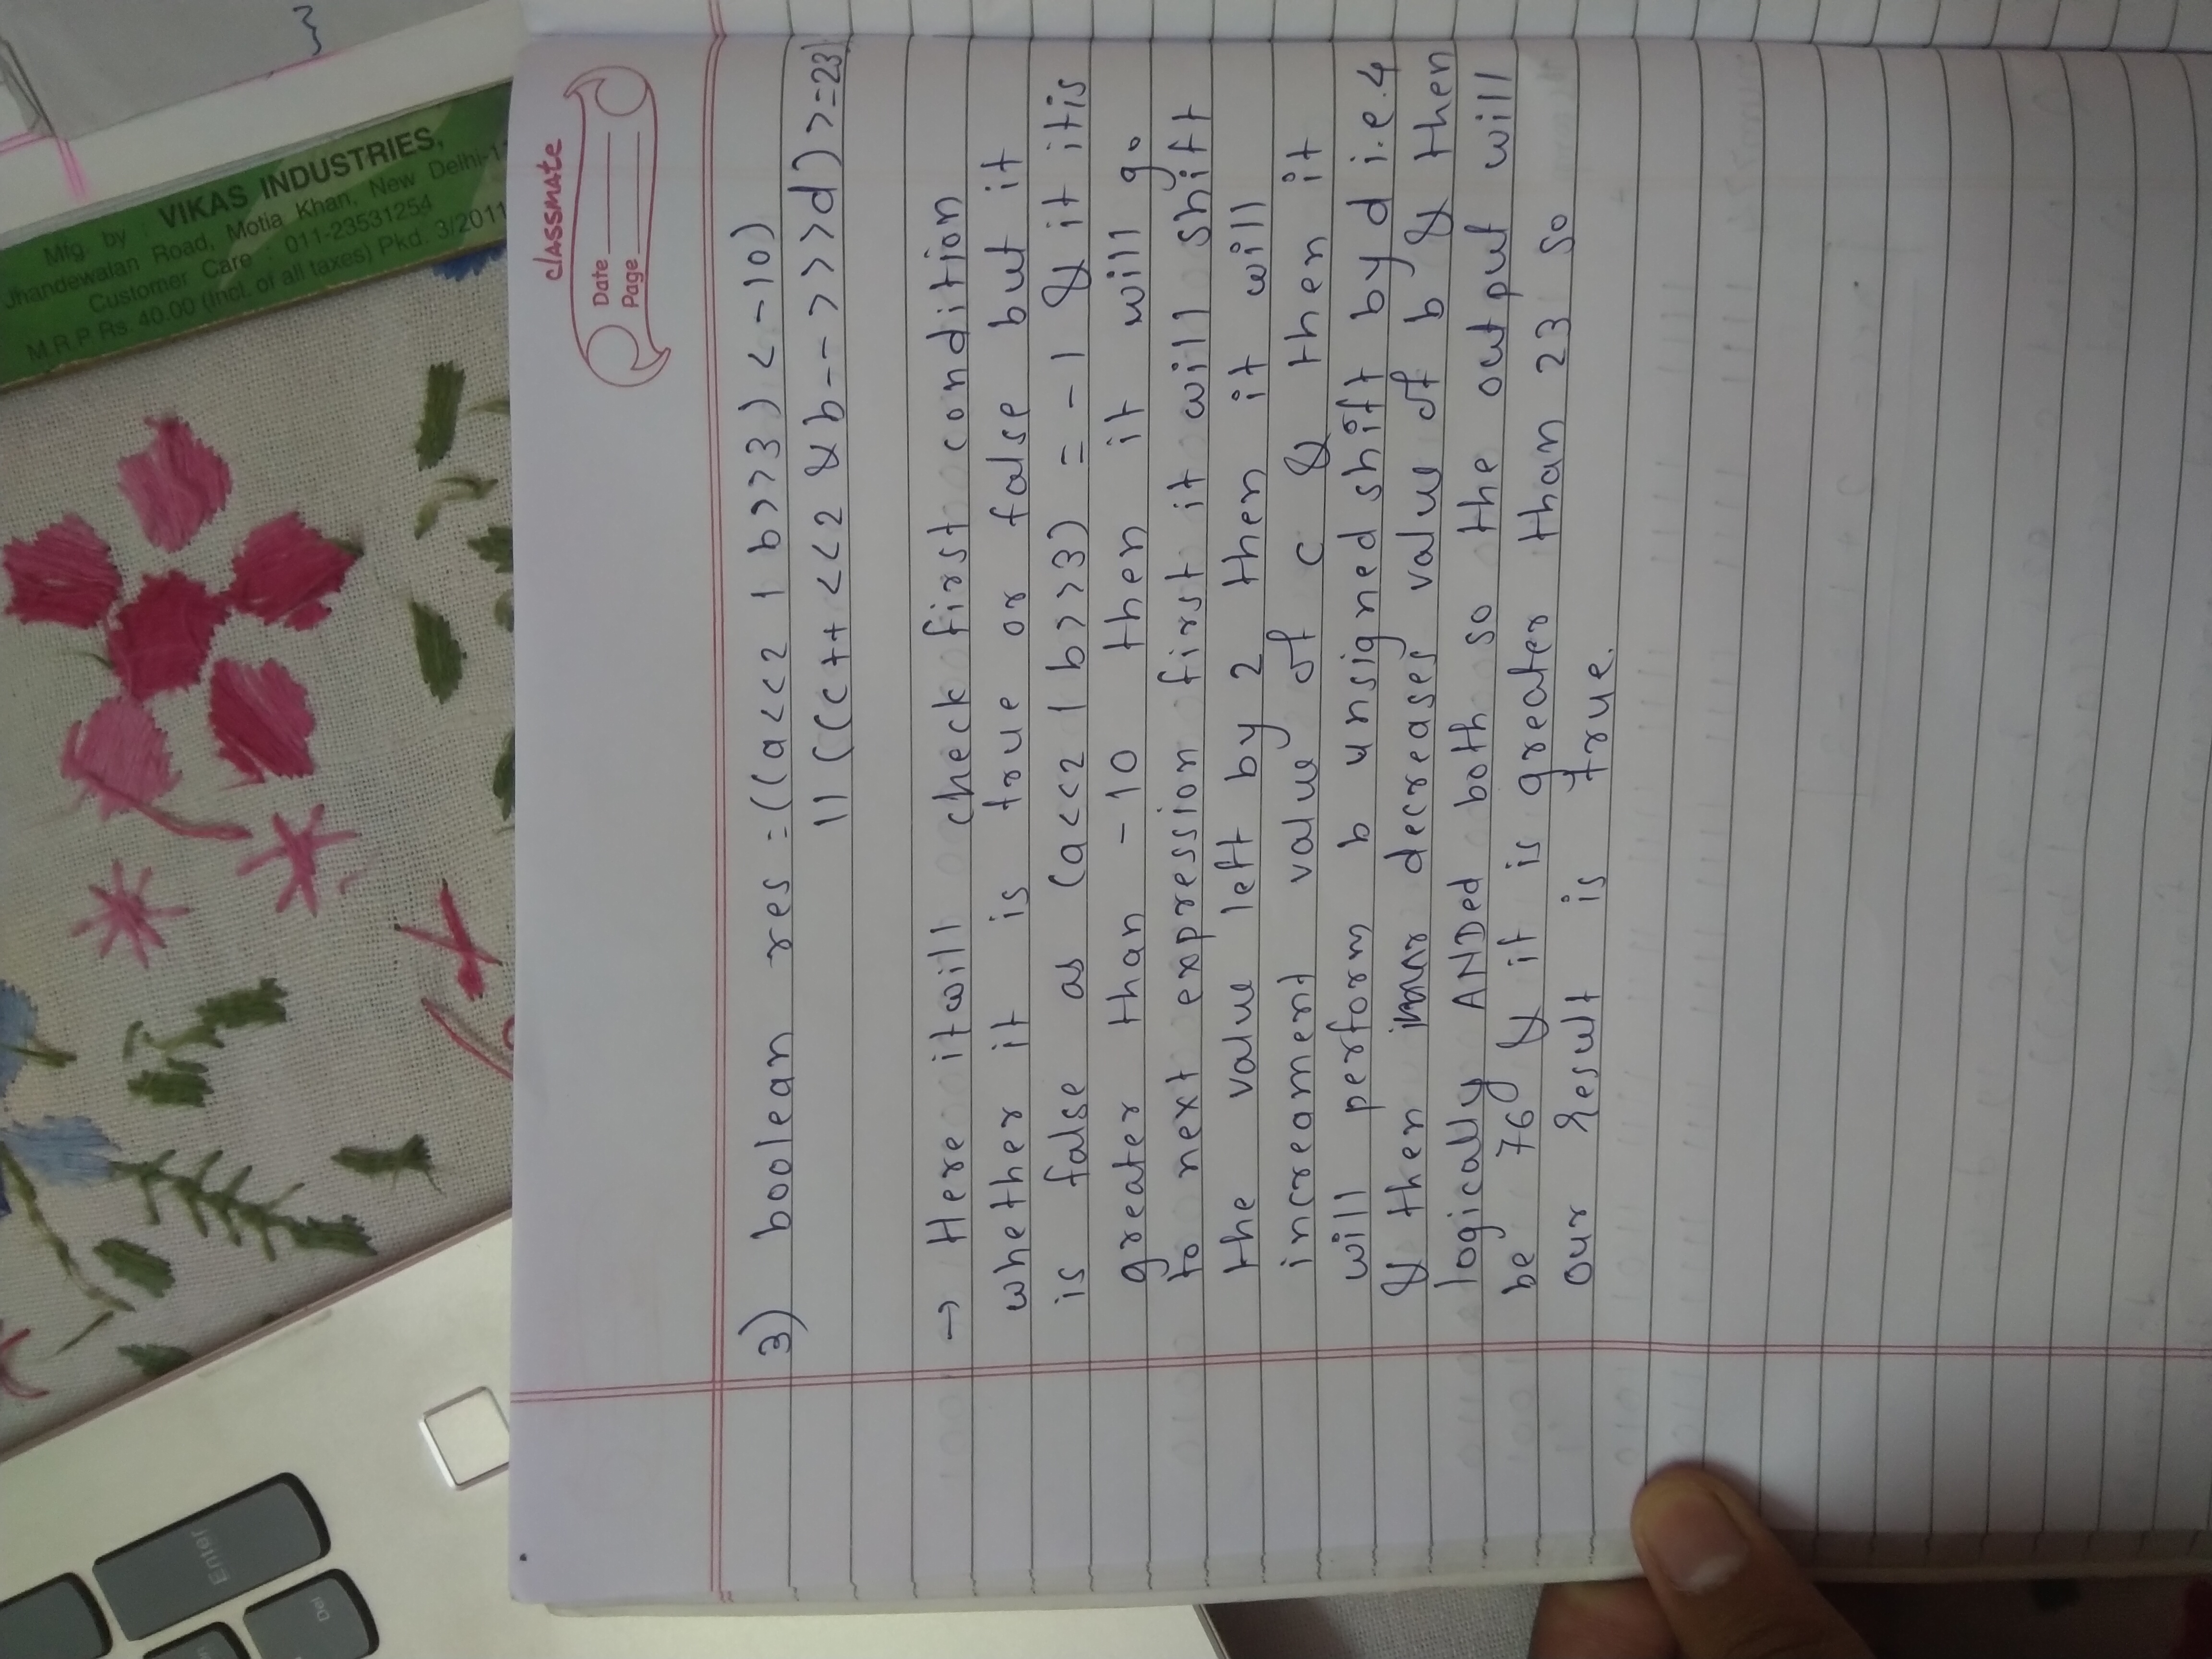 Mfg. by : VIKAS INDUSTRIES,
Jhandewalan Road, Motia Khan, New Delhi-11
Customer Care : 011-23531254
M.R.P Rs. 40.00 (Incl. of all taxes) Pkd. 3/2011
classmate
Date
Page
3) boolean res = ((a<<2 | b>>3) < -10)
|| ((c++ <<2 & b-- >>>d) >=23)
→ Here it will check first condition
whether it is true or false but it
is false as (a<<2 | b>>3) = -1 & it is
greater than -10 then it will go
to next expression first it will shift
the value left by 2 then it will
increament value of c & then it
will perform b unsigned shift by d i.e. 4
& then decreases value of b & then
logically ANDed both so the output will
be 76 & it is greater than 23 so
our Result is true.
Enter
Del